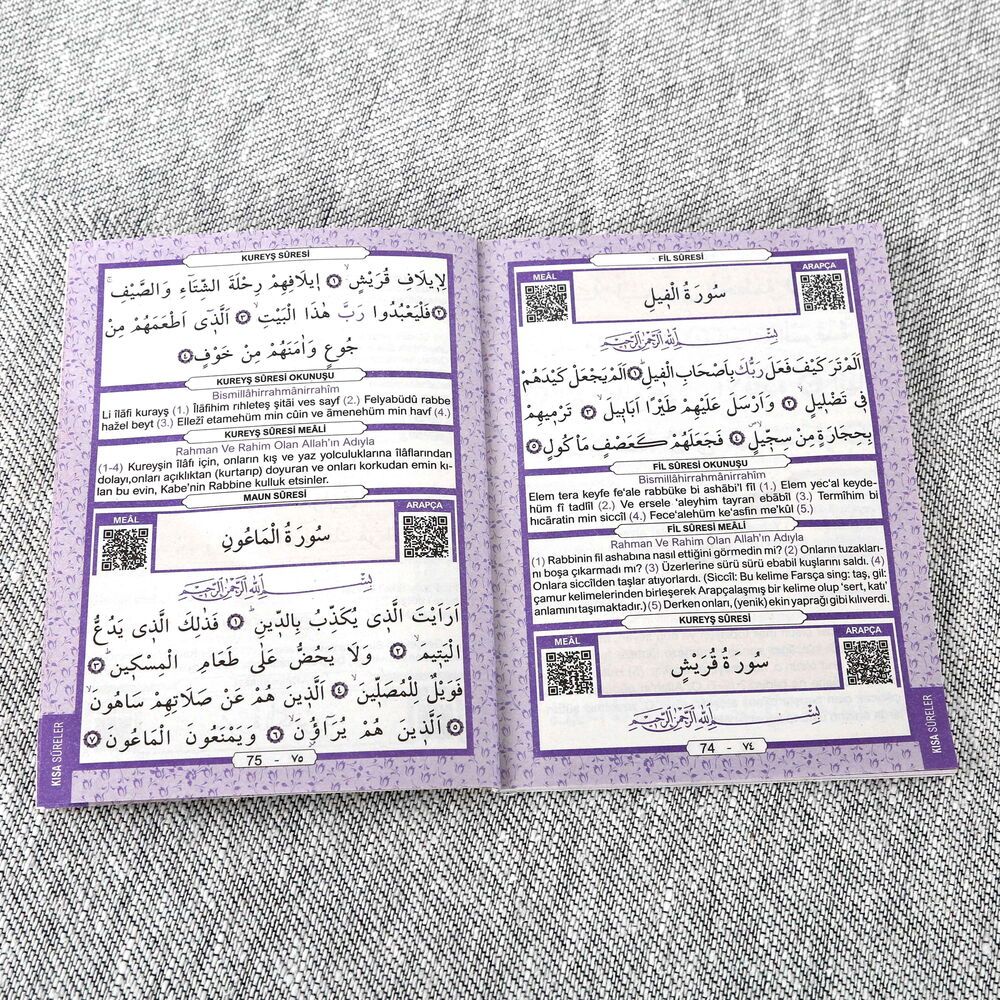 FİL SÛRESİ
MEÂL
ARAPÇA
سُورَةُ الْفٖيلِ
بِسْــــمِ اللّٰهِ الرَّحْمٰنِ الرَّحٖيمِ
اَلَمْ تَرَ كَيْفَ فَعَلَ رَبُّكَ بِاَصْحَابِ الْفٖيلِؕ ١ اَلَمْ يَجْعَلْ كَيْدَهُمْ
فٖى تَضْلٖيلٍۙ ٢ وَاَرْسَلَ عَلَيْهِمْ طَيْرًا اَبَابٖيلَۙ ٣ تَرْمٖيهِمْ
بِحِجَارَةٍ مِنْ سِجّٖيلٍۙ ٤ فَجَعَلَهُمْ كَعَصْفٍ مَأْكُولٍ ٥
FİL SÛRESİ OKUNUŞU
Bismillâhirrahmânirrahîm
Elem tera keyfe fe'ale rabbüke bi ashâbi'l fîl (1.) Elem yec'al keyde-
hüm fî tadlîl (2.) Ve ersele 'aleyhim tayran ebâbîl (3.) Termîhim bi
hıcâratin min siccîl (4.) Fece'alehüm ke'asfin me'kûl (5.)
FİL SÛRESİ MEÂLİ
Rahman Ve Rahim Olan Allah'ın Adıyla
(1) Rabbinin fil ashabına nasıl ettiğini görmedin mi? (2) Onların tuzakları-
nı boşa çıkarmadı mı? (3) Üzerlerine sürü sürü ebabil kuşlarını saldı. (4)
Onlara siccîlden taşlar atıyorlardı. (Siccîl: Bu kelime Farsça sing: taş, gil:
çamur kelimelerinden birleşerek Arapçalaşmış bir kelime olup 'sert, katı'
anlamını taşımaktadır.) (5) Derken onları, (yenik) ekin yaprağı gibi kılıverdi.
KUREYŞ SÛRESİ
MEÂL
ARAPÇA
سُورَةُ قُرَيْشٍ
بِسْــــمِ اللّٰهِ الرَّحْمٰنِ الرَّحٖيمِ
74 - ٧٤
KISA SÛRELER
KUREYŞ SÛRESİ
لِاٖيلَافِ قُرَيْشٍۙ ١ اٖيلَافِهِمْ رِحْلَةَ الشِّتَٓاءِ وَالصَّيْفِۚ
٢ فَلْيَعْبُدُوا رَبَّ هٰذَا الْبَيْتِۙ ٣ اَلَّذٖٓى اَطْعَمَهُمْ مِنْ
جُوعٍ وَاٰمَنَهُمْ مِنْ خَوْفٍ ٤
KUREYŞ SÛRESİ OKUNUŞU
Bismillâhirrahmânirrahîm
Li îlâfi kurayş (1.) Îlâfihim rıhleteş şitâi ves sayf (2.) Felyabüdû rabbe
hażel beyt (3.) Ellezî etamehüm min cûin ve âmenehüm min havf (4.)
KUREYŞ SÛRESİ MEÂLİ
Rahman Ve Rahim Olan Allah'ın Adıyla
(1-4) Kureyşin îlâfı için, onların kış ve yaz yolculuklarına îlâflarından
dolayı,onları açıklıktan (kurtarıp) doyuran ve onları korkudan emin kı-
lan bu evin, Kabe'nin Rabbine kulluk etsinler.
MAUN SÛRESİ
MEÂL
ARAPÇA
سُورَةُ الْمَاعُونِ
بِسْــــمِ اللّٰهِ الرَّحْمٰنِ الرَّحٖيمِ
اَرَاَيْتَ الَّذٖى يُكَذِّبُ بِالدّٖينِؕ ١ فَذٰلِكَ الَّذٖى يَدُعُّ
الْيَتٖيمَۙ ٢ وَلَا يَحُضُّ عَلٰى طَعَامِ الْمِسْكٖينِؕ ٣
فَوَيْلٌ لِلْمُصَلّٖينَۙ ٤ اَلَّذٖينَ هُمْ عَنْ صَلَاتِهِمْ سَاهُونَۙ
٥ اَلَّذٖينَ هُمْ يُرَٓاؤُ۫نَۙ ٦ وَيَمْنَعُونَ الْمَاعُونَ ٧
75 - ٧٥
KISA SÛRELER